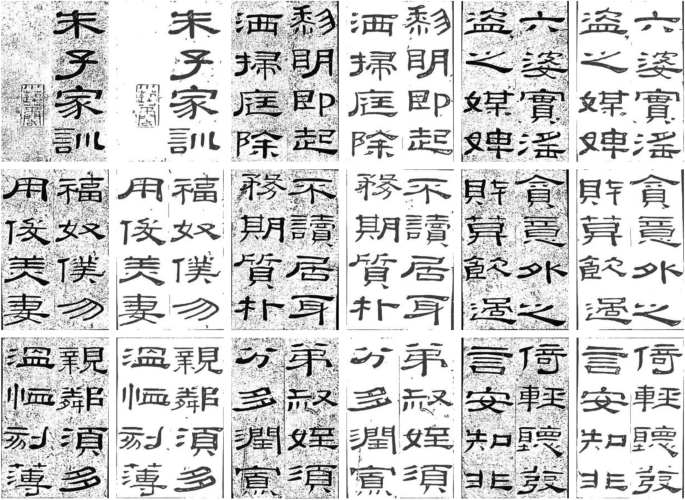 朱子家訓
朱子家訓
黎明即起
洒掃庭除
黎明即起
洒掃庭除
六婆實淫
盜之媒婢
六婆實淫
盜之媒婢
福奴僕勿
用俊美妻
福奴僕勿
用俊美妻
不讀居身
務期質朴
不讀居身
務期質朴
貪意外之
財莫飲過
貪意外之
財莫飲過
親鄰須多
溫恤刻薄
親鄰須多
溫恤刻薄
弟叔姪須
分多潤寡
弟叔姪須
分多潤寡
倚輕聽發
言安知非
倚輕聽發
言安知非